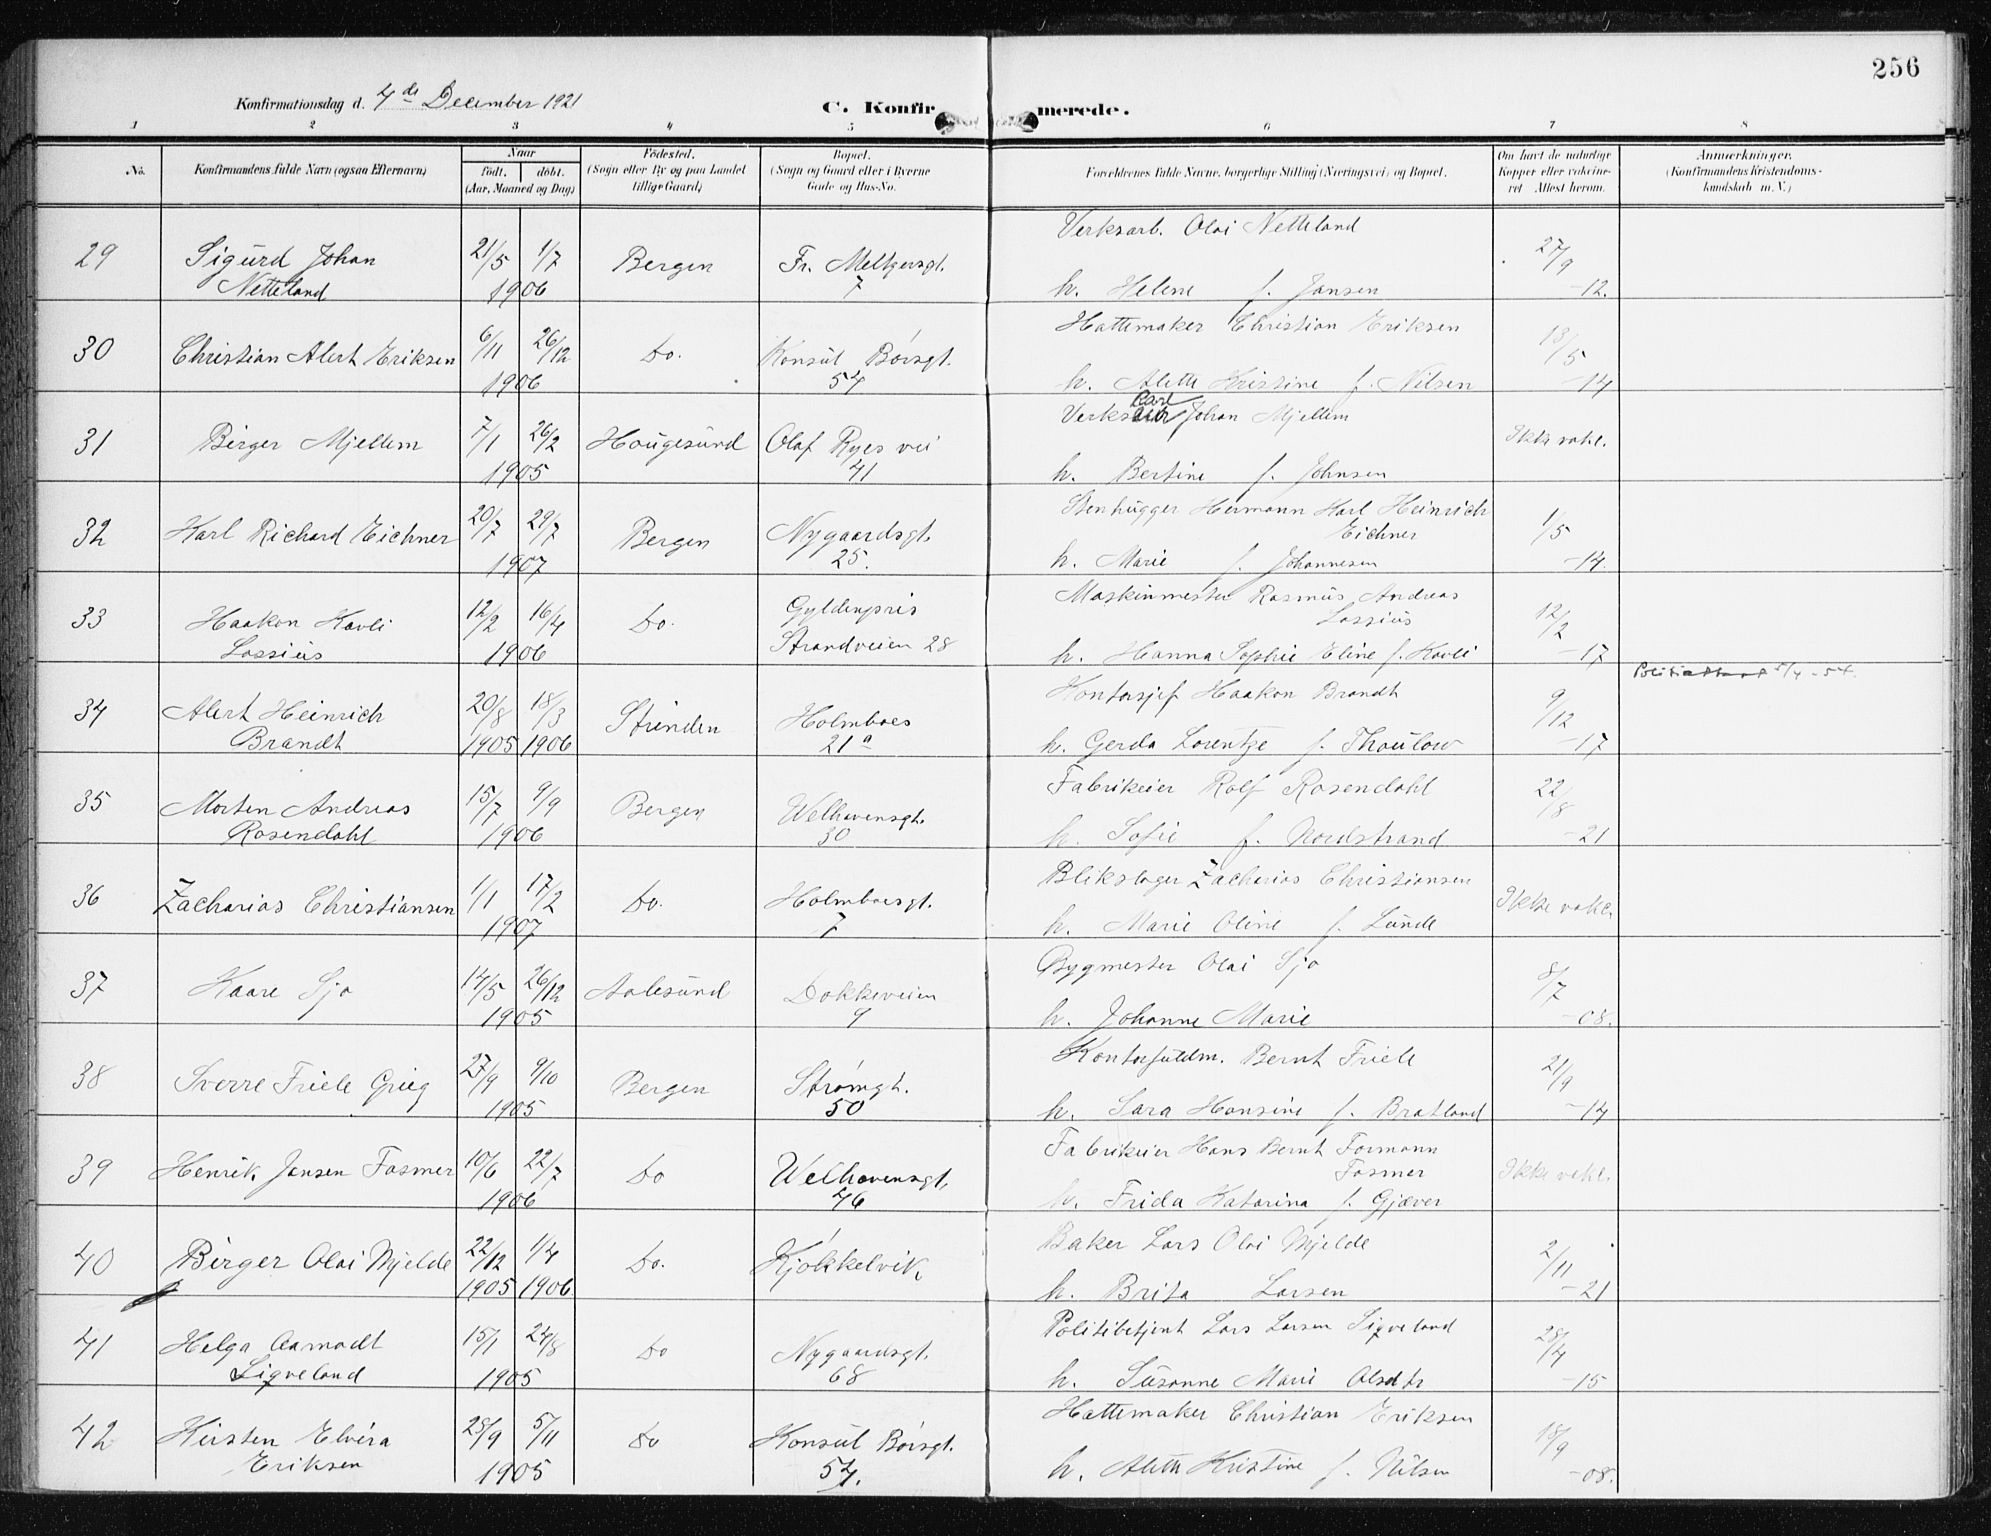 256
Konfirmationsdag d. 4de December 1921
C. Konfirmerede.
1 2 3 4 5 6 7 8
No. Konfirmandens fulde Navn (ogsaa Efternavn) Naar født. døbt. (Aar, Maaned og Dag) Fødested. (Sogn eller By og paa Landet tillige Gaard) Bopæl. (Sogn og Gaard eller i Byerne Gade og Hus-No. Forældrenes fulde Navne, borgerlige Stilling (Næringsvei) og Bopæl. Om havt de naturlige Kopper eller vakcineret Attest herom. Anmerkninger. (Konfirmandens Kristendomskundskab m. V.)
29 Sigurd Johan 21/5 1/7 Bergen Fr. Meltzersgt. Verksarb. Olai Netteland 27/9
Netteland 1906 7 h. Helene f. Jansen -12.
30 Christian Alert Eriksen 6/11 26/12 Do. Konsul Børsgt. Hattemaker Christian Eriksen 18/5
1906 54 h. Alette Kristine f. Nilsen -14
31 Birger Mjellem 7/1 26/2 Hougesund Olaf Ryes vei Verks Carl Johan Mjellem Ikke vakc.
1905 41 h. Bertine f. Johnsen
32 Karl Richard Eichner 20/7 29/7 Bergen Nygaardsgt. Stenhugger Hermann Karl Heinrich Eichner 1/5
1907 25. h. Marie f. Johannesen -14.
33 Haakon Kavli 12/2 16/4 Do. Gyldenpris Maskinmester Rasmus Andreas Lossius 12/2
Lossius 1906 Strandveien 28 h. Hanna Sophie Eline f. Kavli -17
Politiattest 5/4-54.
34 Alert Heinrich 20/8 18/3 Strinden Holmboes Kontorsjef Haakon Brandt 9/12
Brandt 1905 1906 21a h. Gerda Lorentze f. Thaulow -17
35 Morten Andreas 15/7 9/9 Bergen Welhavensgt. Fabrikeier Rolf Rosendahl 22/8
Rosendahl 1906 30 h. Sofie f. Nordstrand -21
36 Zacharias Christiansen 1/1 17/2 Do. Holmboesgt. Blikslager Zacharias Christiansen Ikke vakc.
1907 7 h. Marie Oline f. Lunde
37 Kaare Sjo 14/5 26/12 Aalesund Dokkeveien Bygmester Olai Sjo 8/7
1905 9 h. Johanne Marie -08.
38 Sverre Friele Grieg 27/9 9/10 Bergen Strømgt. Kontorfuldm. Bernt Friele 21/9
1905 50 h. Sara Hansine f. Bratland -14
39 Henrik Jansen Fasmer 10/6 22/7 Do Welhavensgt. Fabrikeier Hans Bernt Formann Fasmer Ikke vakc.
1906 76 h. Frida Katarina f. Gjæver
40 Birger Olai Mjelde 22/12 1/4 Do. Kjøkkelvik Baker Lars Olai Mjelde 2/11
1905 1906 h. Brita Larsen -21
41 Helga Aamodt 15/1 24/8 Do Nygaardsgt. Politibetjent Lars Larsen Sigveland 28/4
Sigveland 1905 68 h. Susanne Marie Olsdtr -15
42 Kirsten Elvira 28/9 5/11 Do Konsul Børsgt. Hattemaker Christian Eriksen 18/9
Eriksen 1905 54. h. Alette Kristine f. Nilsen -08.